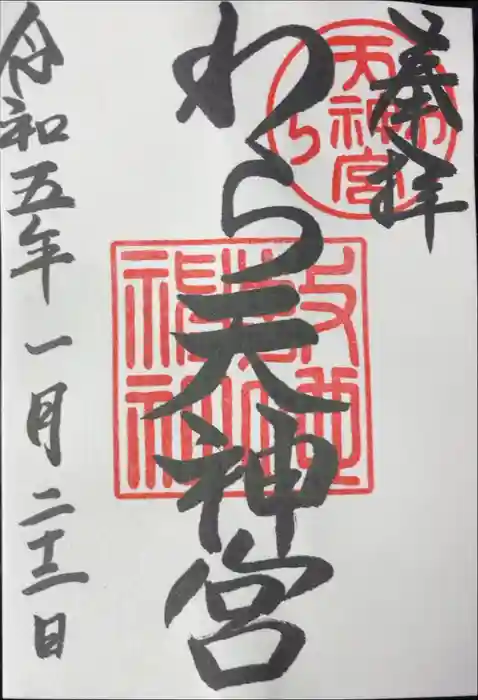 奉拝
わら天神宮
令和五年一月二十三日
わら天神宮